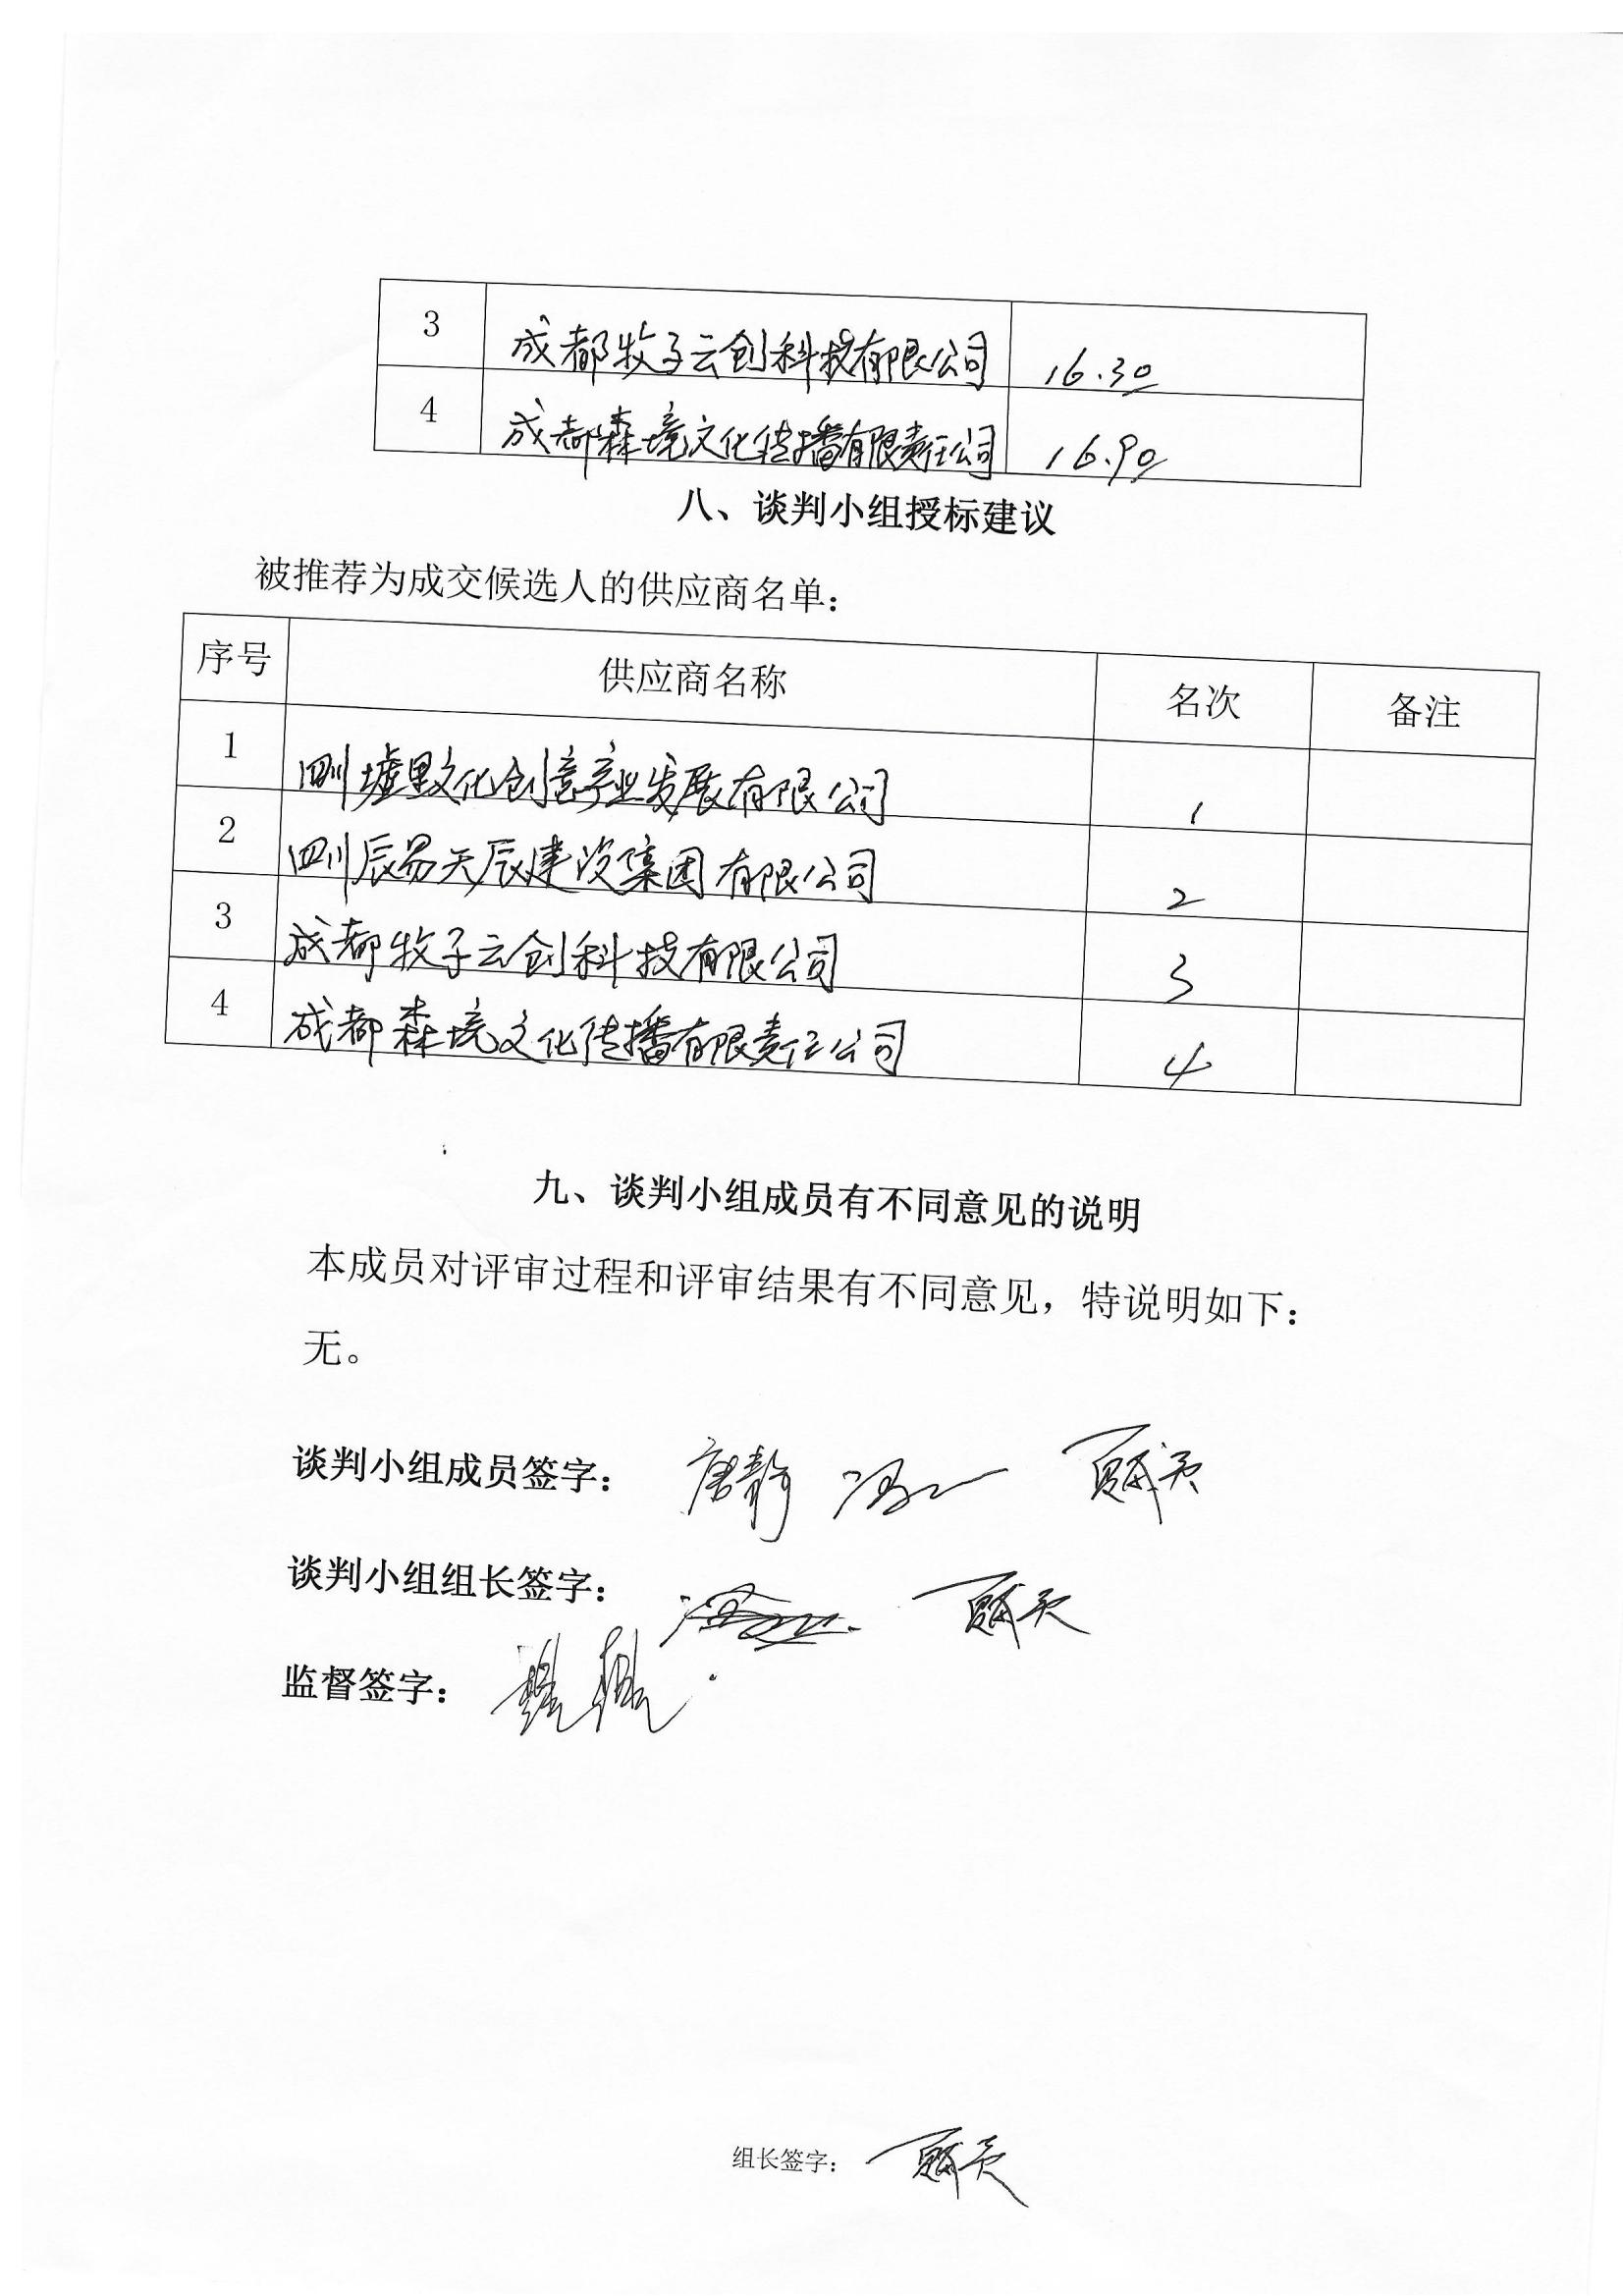 3 成都牧子云创科技有限公司 16.30
4 成都森境文化传播有限责任公司 16.90
八、谈判小组授标建议
被推荐为成交候选人的供应商名单：
序号 供应商名称 名次 备注
1 四川墟里文化创意产业发展有限公司 1
2 四川辰易天辰建设集团有限公司 2
3 成都牧子云创科技有限公司 3
4 成都森境文化传播有限责任公司 4
九、谈判小组成员有不同意见的说明
本成员对评审过程和评审结果有不同意见，特说明如下：
无。
谈判小组成员签字： 唐静
谈判小组组长签字：
监督签字：
组长签字：